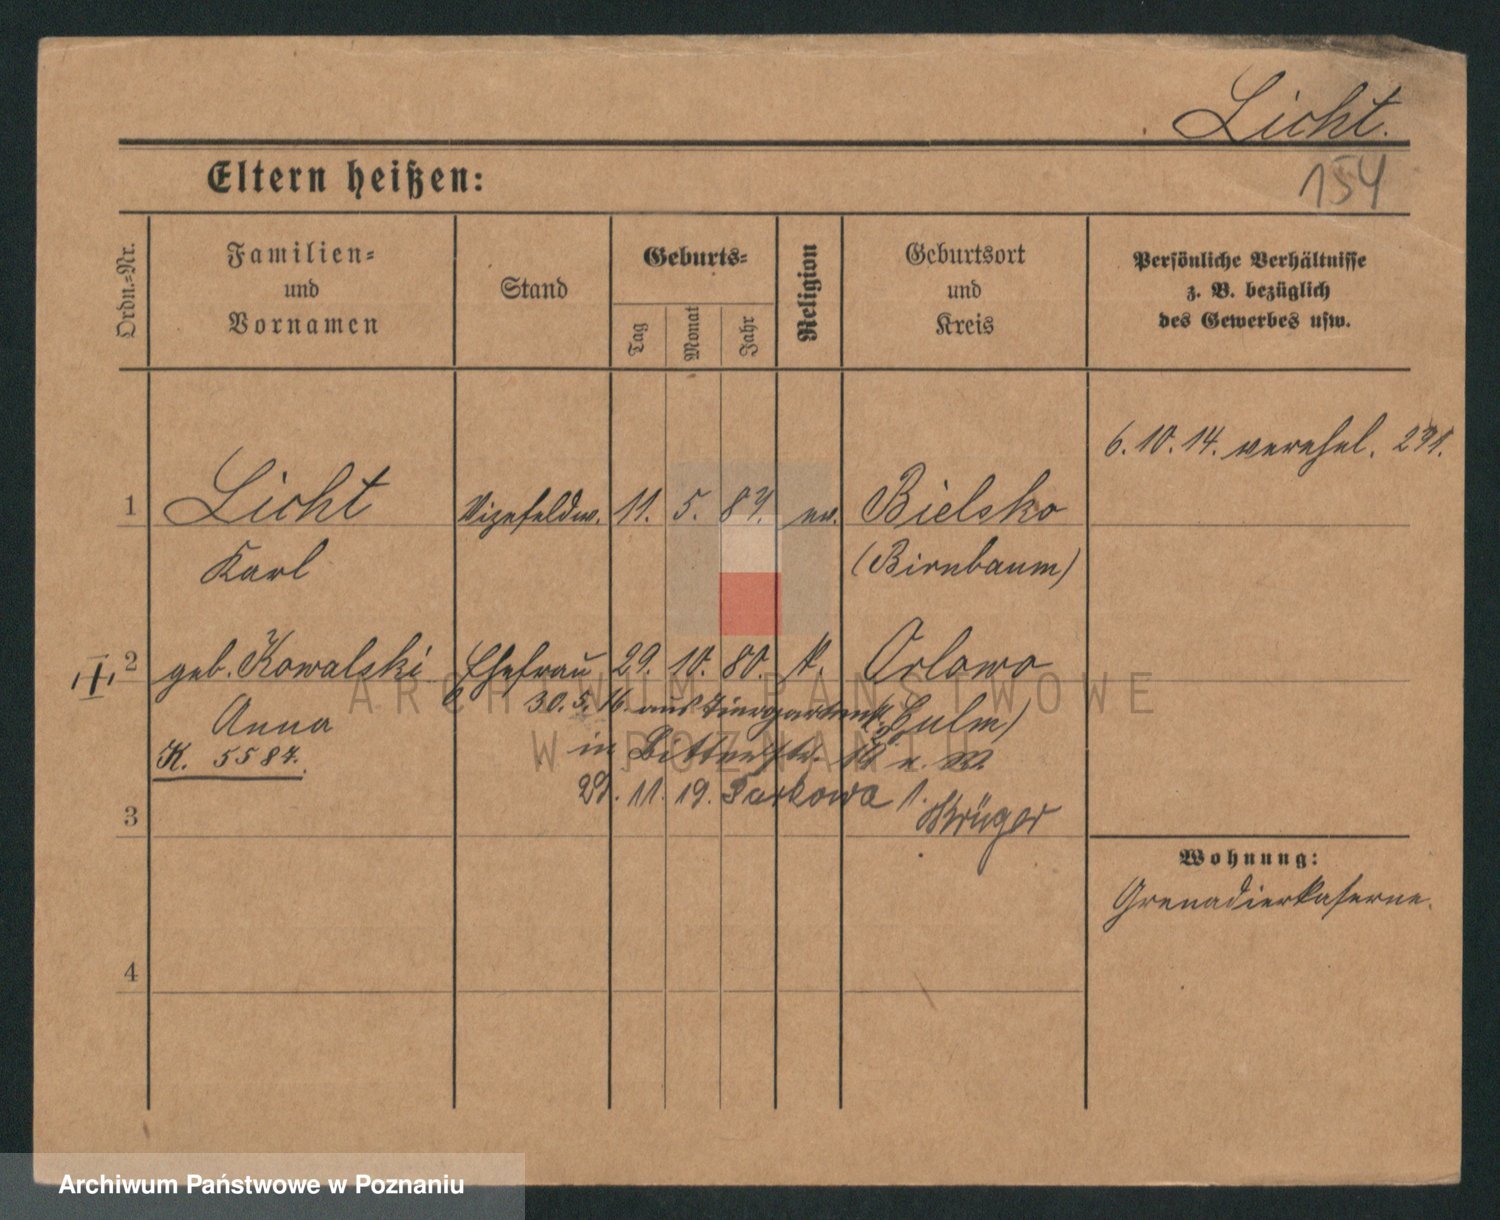 Licht.
154
Eltern heißen:
Ordn.-Nr.
Familien-
und
Vornamen
Stand
Geburts-
Tag
Monat
Jahr
Religion
Geburtsort
und
Kreis
Persönliche Verhältnisse
z. B. bezüglich
des Gewerbes usw.
6. 10. 14. verehel. 291.
1 Licht Vizefeldw. 11. 5. 87. ev. Bielsko
Karl (Birnbaum)
2 geb. Kowalski Ehefrau 29. 10. 80. k. Orlowo
Anna (Culm)
30. 5. 16. aus Tiergartenstr.
K. 5587.
in Bitterstr. 18
29. 11. 19. Parkowa 1.
Krüger
3
Wohnung:
Grenadierkaserne.
4
ARCHIWUM PAŃSTWOWE
W POZNANIU
Archiwum Państwowe w Poznaniu